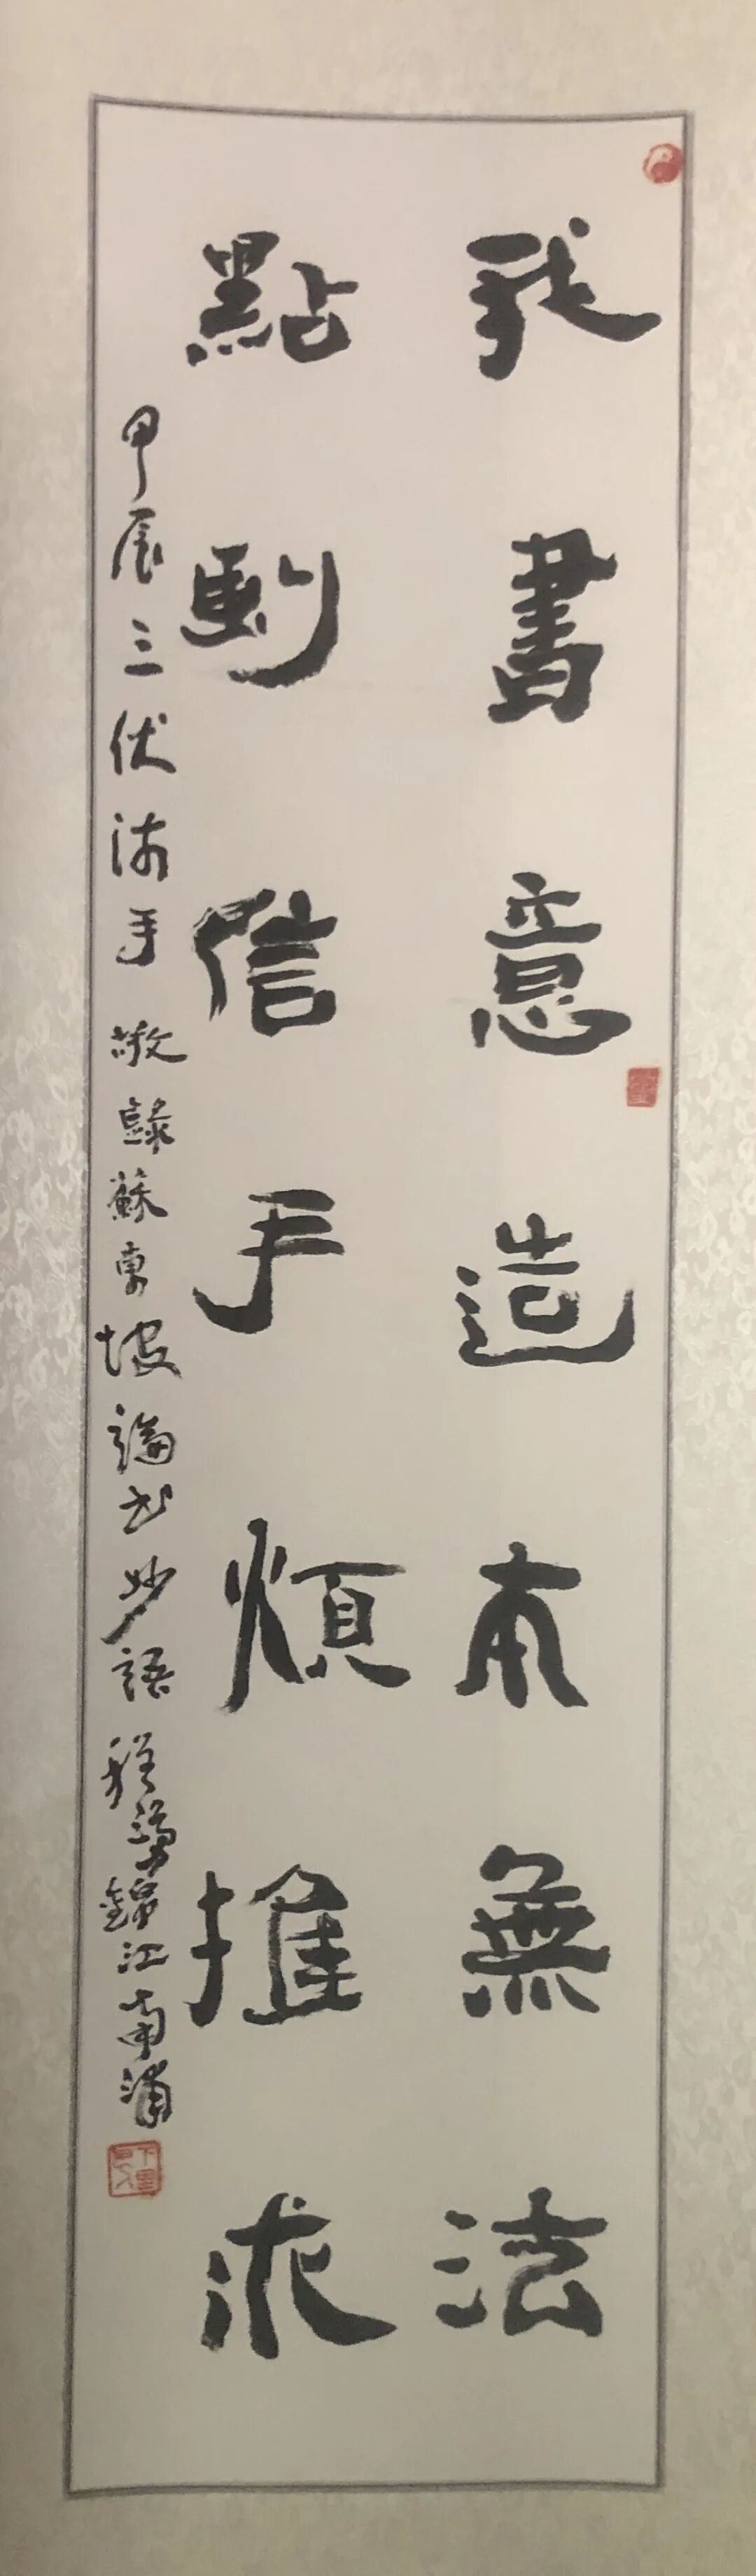 我書意造本無法
點劃信手煩推求
甲辰三伏沐手敬錄蘇東坡論书妙語 程 錦江南浦